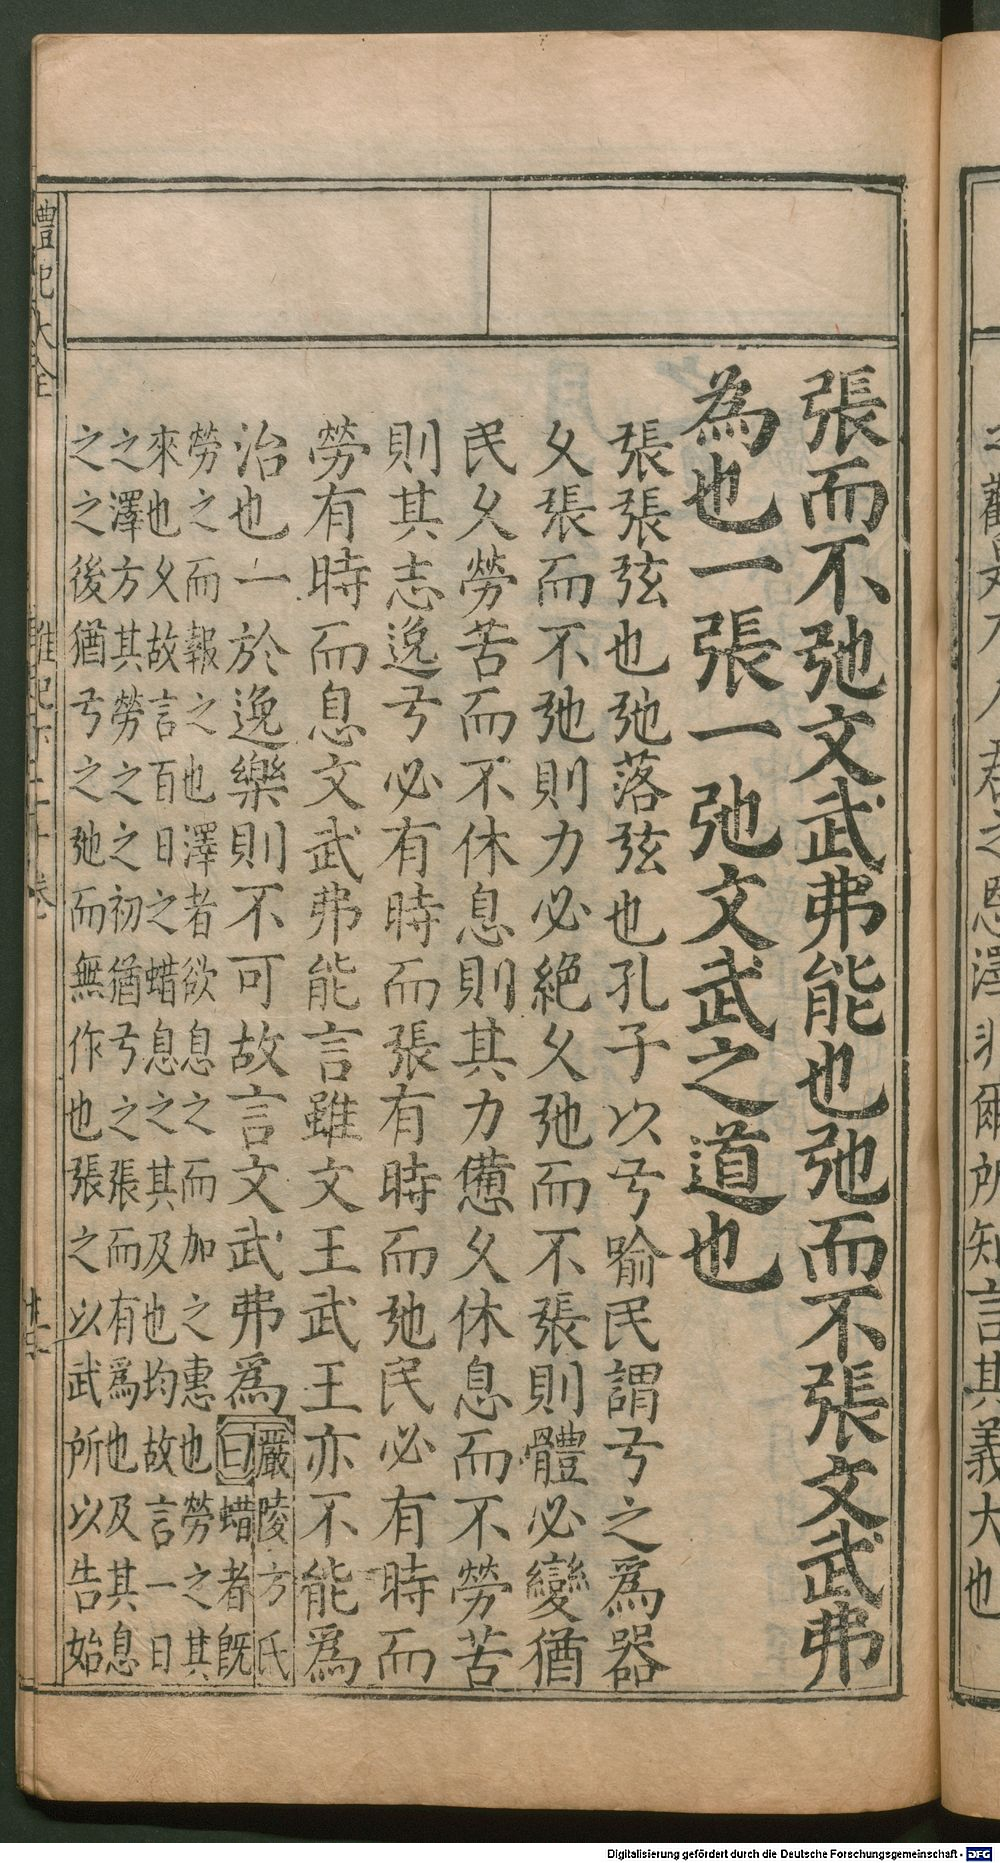 君之恩澤非爾所知言其義大也
張而不弛文武弗能也弛而不張文武弗
為也一張一弛文武之道也
張張弦也弛落弦也孔子以弓喻民謂弓之爲器
久張而不弛則力必絕久弛而不張則體必變猶
民久勞苦而不休息則其力憊久休息而不勞苦
則其志逸弓必有時而張有時而弛民必有時而
勞有時而息文武弗能言雖文王武王亦不能爲
治也一於逸樂則不可故言文武弗爲
嚴陵方氏
曰蜡者既
勞之而報之也澤者欲息之而加之惠也勞之其
來也久故言百日之蜡息之其及也均故言一日
之澤方其勞之之初猶弓之張而有爲也及其息
之之後猶弓之弛而無作也張之以武所以告始
禮記大全
雜記下二十卷
Digitalisierung gefördert durch die Deutsche Forschungsgemeinschaft - DFG